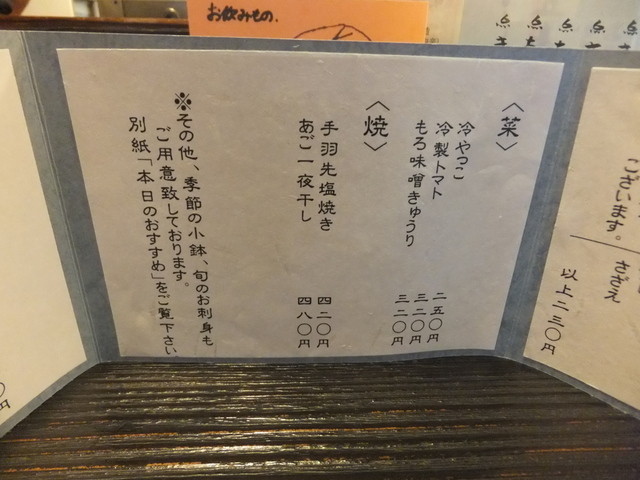 お飲みもの.
ございます。
さざえ
以上二三〇円
〈菜〉
冷やっこ 二五〇円
冷製トマト 三二〇円
もろ味噌きゅうり 三二〇円
〈焼〉
手羽先塩焼き 四二〇円
あご一夜干し 四八〇円
※その他、季節の小鉢、旬のお刺身も
ご用意致しております。
別紙「本日のおすすめ」をご覧下さい
〇円